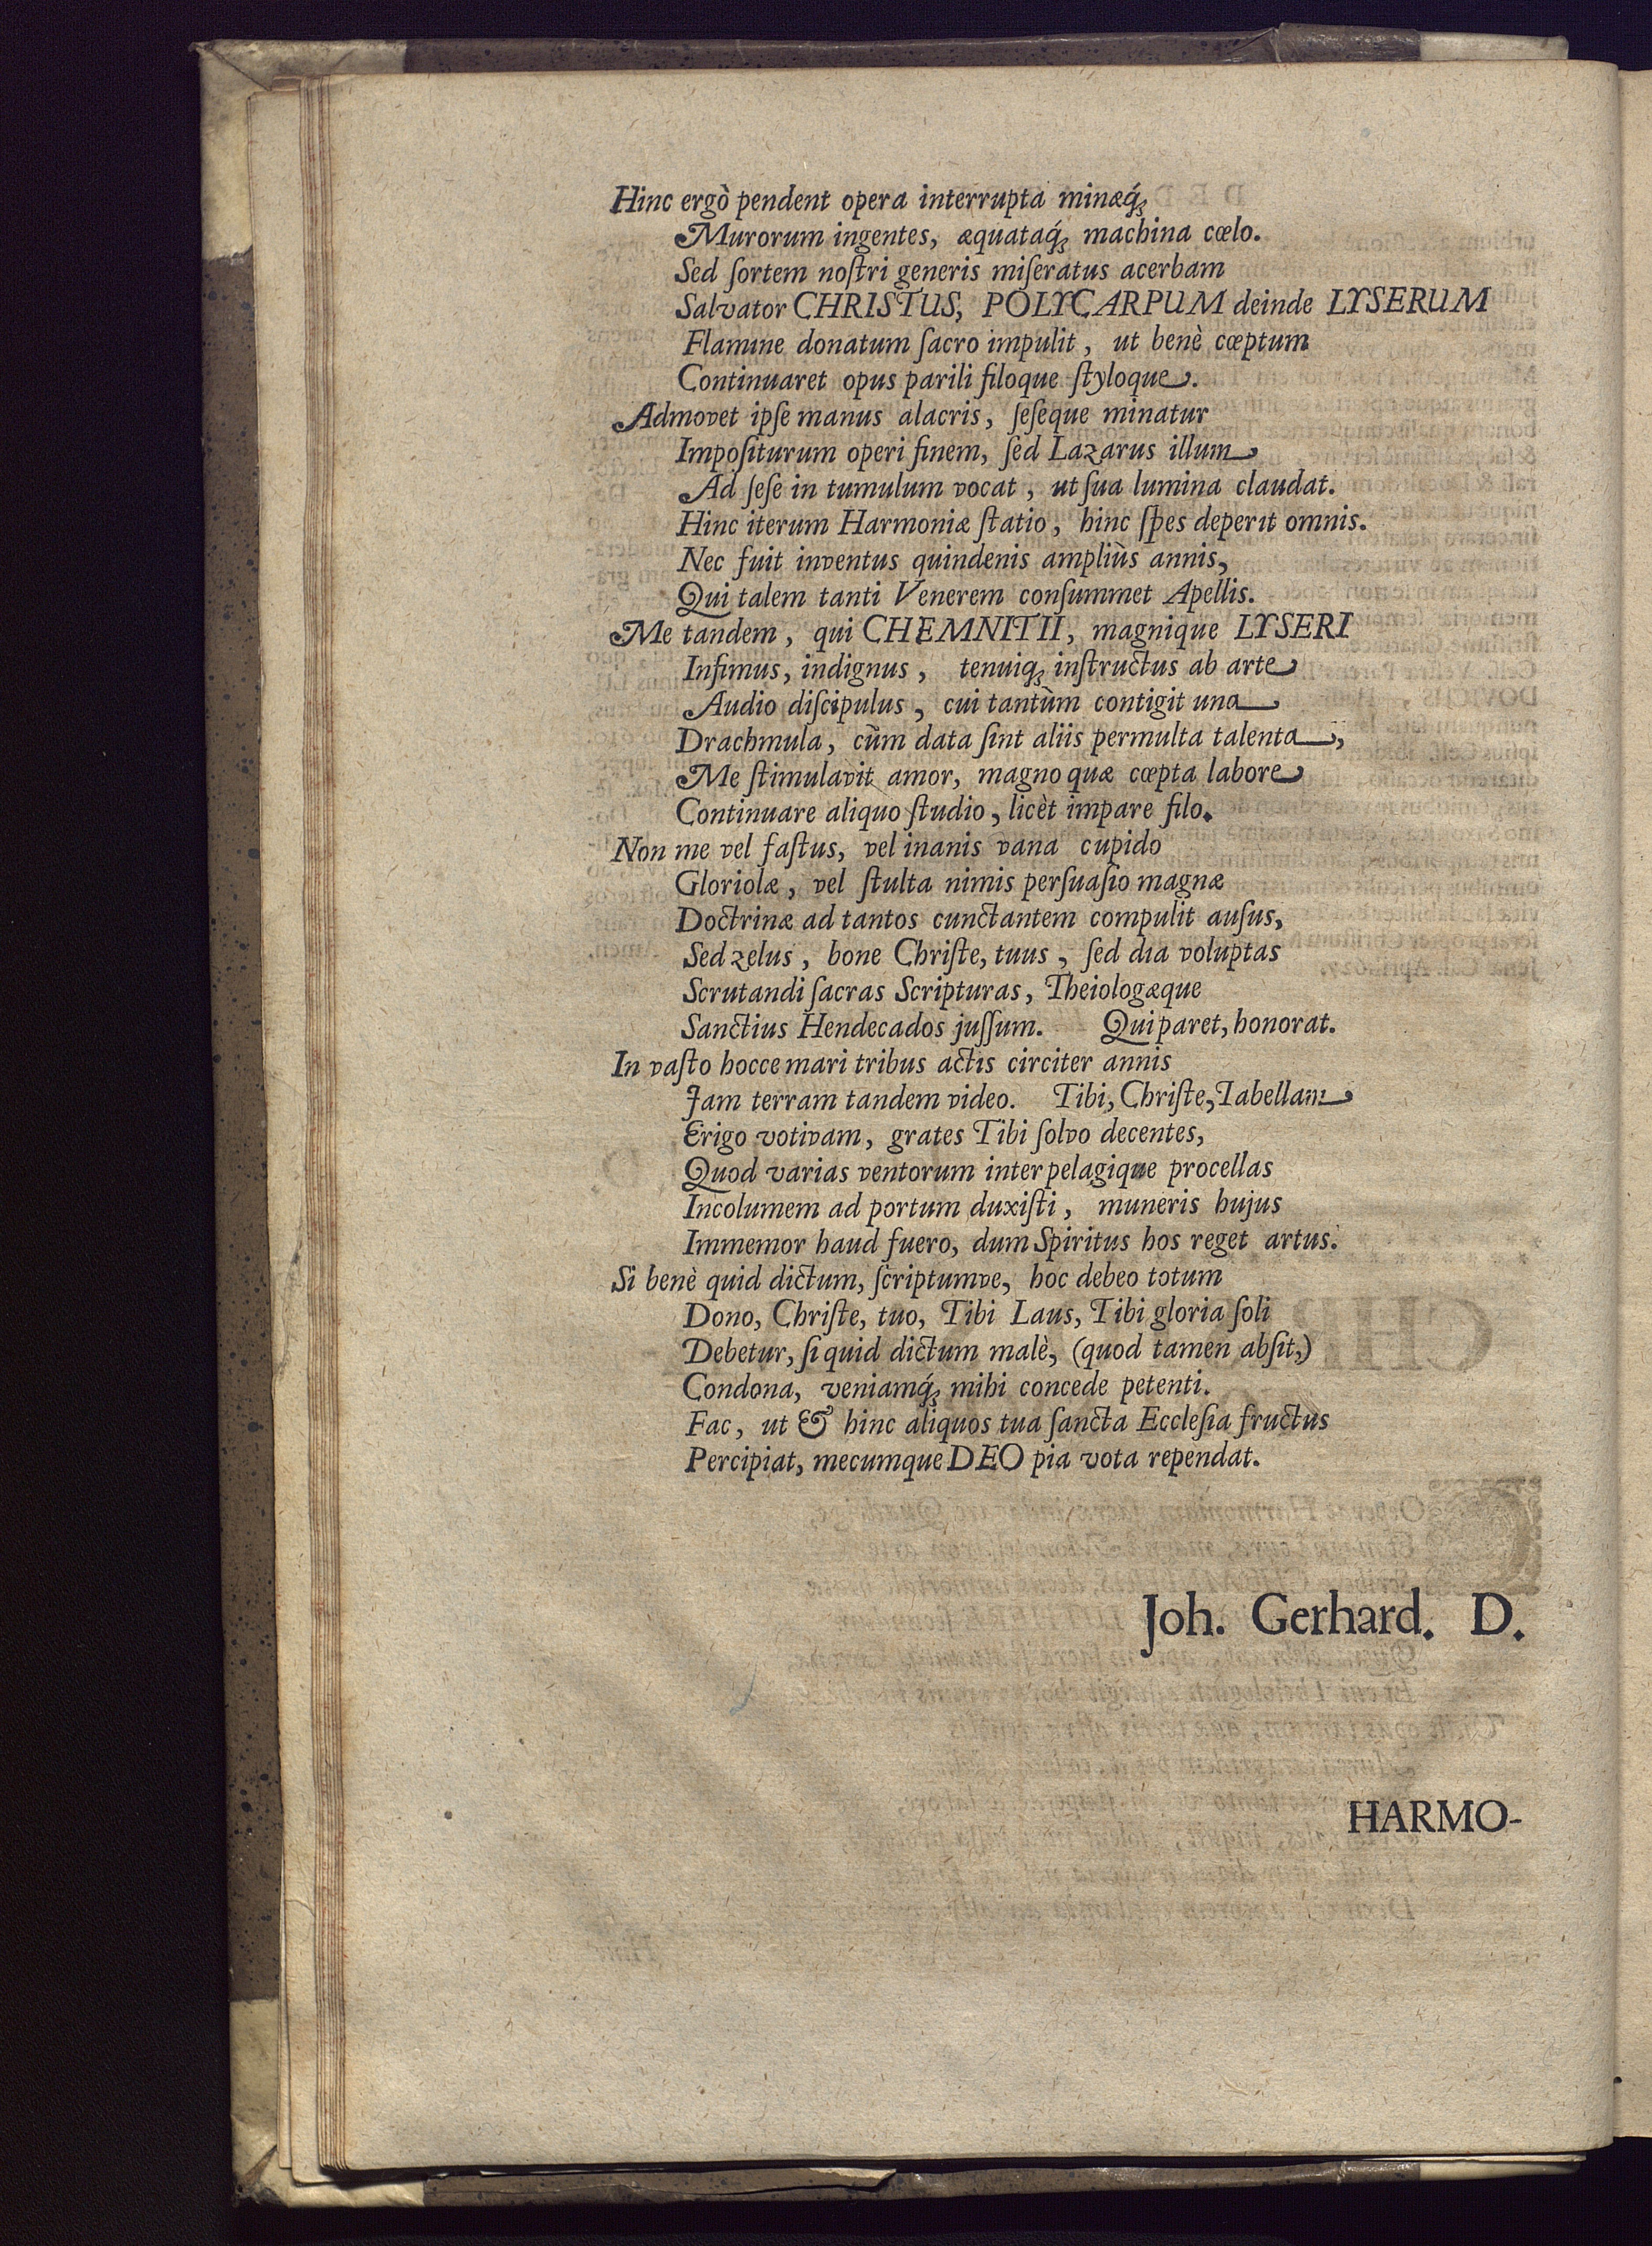 Hinc ergò pendent opera interrupta minæq́ꝫ
Murorum ingentes, æquataq́ꝫ machina cœlo.
Sed ſortem noſtri generis miſeratus acerbam
Salvator CHRISTUS, POLYCARPUM deinde LYSERUM
Flamine donatum ſacro impulit, ut benè cœptum
Continuaret opus parili filoque ſtyloque.
Admovet ipſe manus alacris, ſeſeque minatur
Impoſiturum operi finem, ſed Lazarus illum
Ad ſeſe in tumulum vocat, ut ſua lumina claudat.
Hinc iterum Harmoniæ ſtatio, hinc ſpes deperit omnis.
Nec fuit inventus quindenis ampliùs annis,
Qui talem tanti Venerem conſummet Apellis.
Me tandem, qui CHEMNITII, magnique LYSERI
Infimus, indignus, tenuiqꝫ inſtructus ab arte
Audio diſcipulus, cui tantùm contigit una
Drachmula, cùm data ſint aliis permulta talenta,
Me ſtimulavit amor, magno quæ cœpta labore
Continuare aliquo ſtudio, licèt impare filo.
Non me vel faſtus, vel inanis vana cupido
Gloriolæ, vel ſtulta nimis perſuaſio magnæ
Doctrinæ ad tantos cunctantem compulit auſus,
Sed zelus, bone Chriſte, tuus, ſed dia voluptas
Scrutandi ſacras Scripturas, Theiologæque
Sanctius Hendecados juſſum. Qui paret, honorat.
In vaſto hocce mari tribus actis circiter annis
Jam terram tandem video. Tibi, Chriſte, Tabellam
Erigo votivam, grates Tibi ſolvo decentes,
Quod varias ventorum inter pelagique procellas
Incolumem ad portum duxiſti, muneris hujus
Immemor haud fuero, dum Spiritus hos reget artus.
Si benè quid dictum, ſcriptumve, hoc debeo totum
Dono, Chriſte, tuo, Tibi Laus, Tibi gloria ſoli
Debetur, ſi quid dictum malè, (quod tamen abſit,)
Condona, veniamq́ꝫ mihi concede petenti.
Fac, ut & hinc aliquos tua ſancta Eccleſia fructus
Percipiat, mecumque DEO pia vota rependat.
Joh. Gerhard. D.
HARMO-